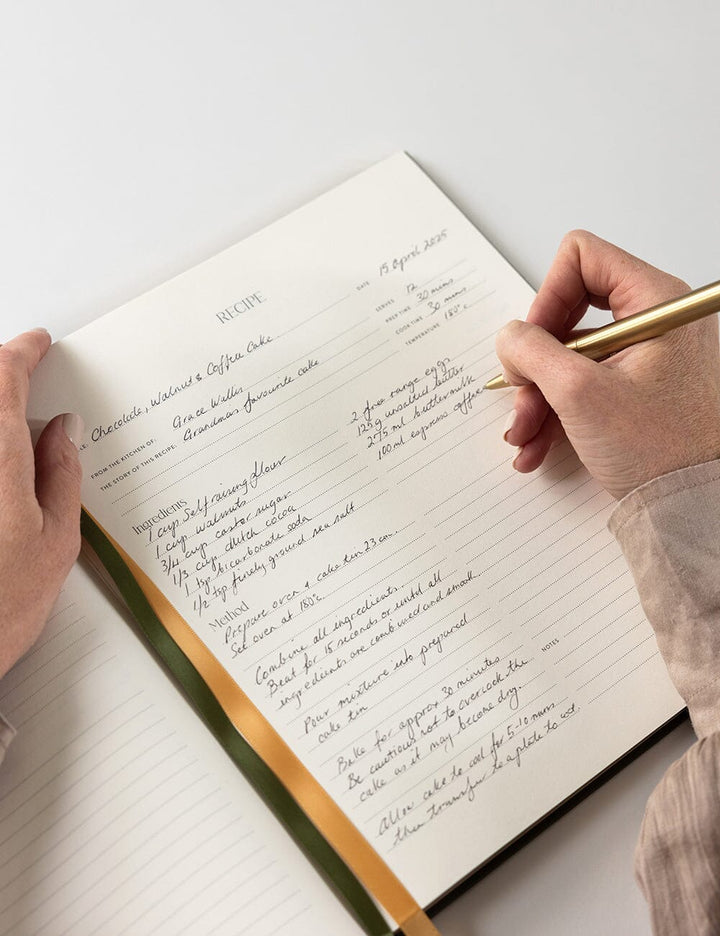 RECIPE
DATE 15 April 2025
SERVES 12
PREP TIME 30 mins
COOK TIME 30 mins
TEMPERATURE 180°c
Chocolate, Walnut & Coffee Cake
FROM THE KITCHEN OF: Grace Wallis
THE STORY OF THIS RECIPE: Grandmas favourite cake
Ingredients
1 cup Self raising flour
1 cup walnuts
3/4 cup castor sugar
1/3 cup dutch cocoa
1 tsp bicarbonate soda
1/2 tsp finely ground sea salt
2 free range eggs
125g unsalted butter
275 ml buttermilk
100ml espresso coffee
Method
Prepare oven & cake tin 23 cm
Set oven at 180°c.
Combine all ingredients.
Beat for 15 seconds or until all
ingredients are combined and smooth.
Pour mixture into prepared
cake tin
Bake for approx 30 minutes
Be cautious not to overcook the
cake as it may become dry.
Allow cake to cool for 5-10 mins
then transfer to a plate to
NOTES